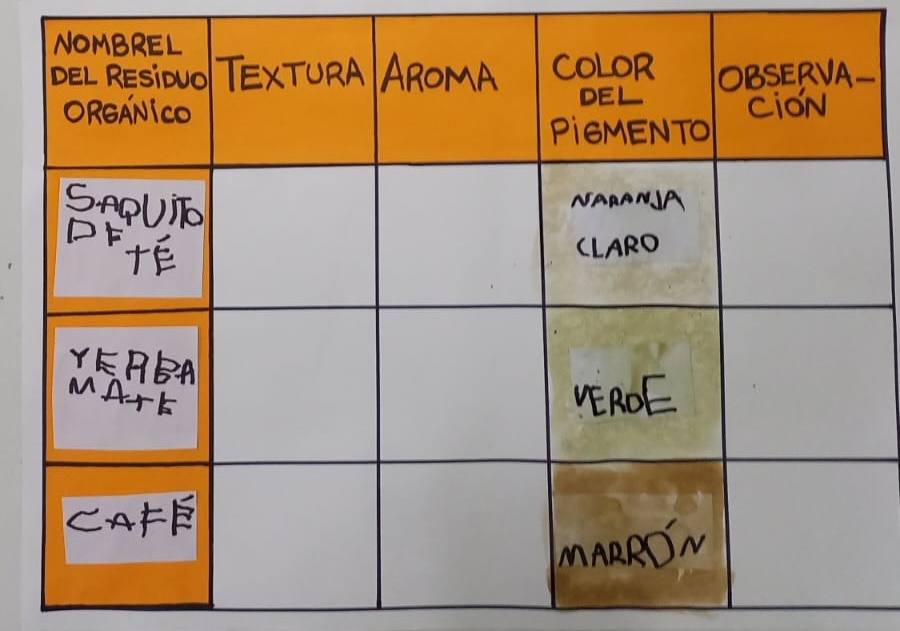 NOMBREL
DEL RESiDUO
ORGÁNiCO
TEXTURA
AROMA
COLOR
DEL
PiGMENTO
OBSERVA-
CiÓN
SAQUiTO
DE
TÉ
NARANJA
CLARO
YERBA
MATE
VERDE
CAFÉ
MARRÓN